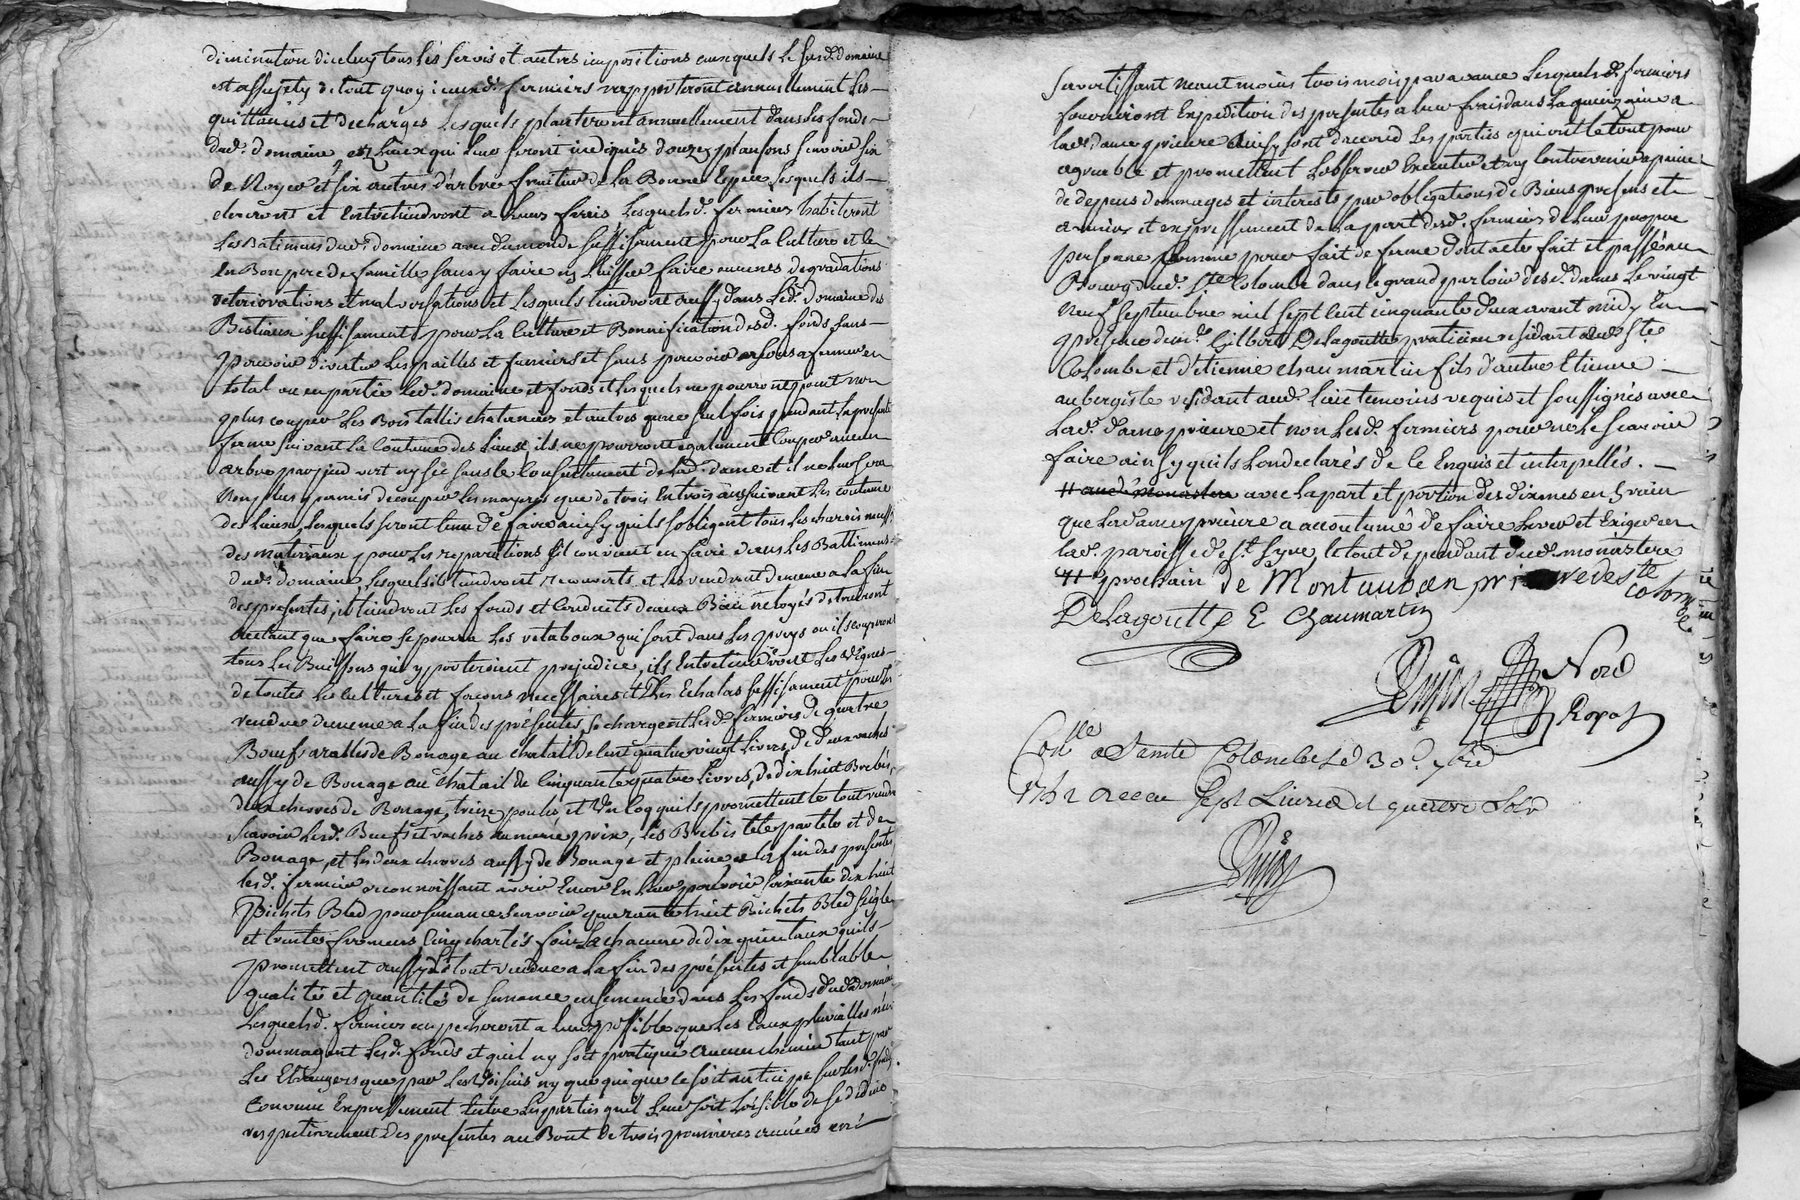 diminution diceluy tous les servis et autres impositions auxquels le susd. domaine
est assujety de tout quoy iceux d. fermiers rapporteront annuellement les
quittances et decharges lesquels planteront annuellement dans les fonds
dud. domaine et lieux qui leur seront indiqués douze plansons scavoir six
de Noyer et six autres d'arbre fruitier de la Bonne Espece lesquels ils
eleveront et Entretiendront a leurs frais lesquels d. fermiers habiteront
Les Batimens dud. domaine avec du monde suffisament pour la Culture et le
en Bon pere de famille sans y faire ny laisser faire aucunes degradations
deteriorations et malversations et lesquels tiendront aussy dans led. domaine des
Bestiaux suffisament pour la Culture et Bonnification desd. fonds sans
pouvoir divertir les pailles et fumiers et sans pouvoir sousafermer en
total ou en partie led. domaine et fonds et lesquels ne pourront point non
plus couper les Bois taillis chataniers et autres qu'une seul fois pendant la presente
ferme suivant la Coutume des lieux ils ne pourront egalement couper aucun
arbre par pied vert ny sec sans le Consentement de lad. dame et il ne leur sera
Non plus permis de couper les mayeres que de trois En trois ans suivant les coutume
des lieux lesquels seront tenu de faire ainsy quils sobligent tous les charois
des materiaux pour les reparations quil convient en faire dans les Battimens
dud. domaine, lesquels ils tiendront recouverts et les rendront de meme a la fin
des presentes, ils tiendront les fonds et Conduits deaux Bien netoyés detruiront
autant que faire se pourra les rataboux qui sont dans les preys ou ils couperont
tous les Buissons qui y porteroient prejudice, ils Entretiendront les vignes
de toutes les cultures et façons necessaires et des Echalas suffisament pour les
rendre de meme a la fin des présentes, se chargent lesd. fermiers de quatre
Boeufs arables de Bonage au chatail de cent quatre vingt livres, de deux vaches
aussy de Bonage au chatail de Cinquante quatre livres, de dix huit Brebis,
deux chevres de Bonage, treize poules et Un Coq quils promettent le tout rendre
scavoir lesd. Boeufs et vaches au meme prix, les Brebis tete par tete et de
Bonage, et les deux chevres aussy de Bonage et pleine a la fin des presentes
lesd. fermiers reconnoissant avoir Encore En leur pouvoir soixante dix huit
Bichets Bled pour semances scavoir quarante huit Bichets Bled seigle
et trente froment Cinq chartés foin la chacune de dix quintaux quils
promettent aussy le tout rendre a la fin des présentes et semblable
qualité et quantité de semance ensemencé dans les fonds dud. domaine
Lesquels d. fermiers empecheront a leur possible que les Eaux pluvialles n'en
dommagent lesd. fonds et quil ny soit pratiqué aucun chemin tant par
Les Etrangers que par les voisins ny que qui que ce soit anticipe sur lesd. fonds
Convenu Expressement Entre les parties quil leur soit loisible de se dedire
respectivement des presentes au Bout de trois premieres années en
s'avertissant neantmoins trois mois par avance lesquels d. fermiers
fourniront Expedition des presentes a leur frais dans la quinzaine a
lad. dame prieure Ainsy sont d'accord les parties qui ont le tout pour
agreable et promettent l'observer Executer et ny contrevenir a peine
de depens dommages et interests par obligations de Biens presens et
avenirs et expressement de la part desd. fermiers de leur propre
personne comme pour fait de ferme dont acte fait et passé au
Bourg dud. Ste Colombe dans le grand parloir desd. dames le vingt
neuf septembre mil sept cent cinquante deux avant midy En
presence de me. Gilbert Delagoutte praticien residant aud. Ste
Colombe et d'etienne chaumartin fils d'autre Etienne
aubergiste residant aud. lieu temoins requis et soussignés avec
Lad. dame prieure et non lesd. fermiers pour ne le scavoir
faire ainsy quils l'on declarés de ce Enquis et interpellés.
avec la part et portion des dixmes en grain
que lad dame prieure a accoutumé de faire lever et Exiger en
lad. paroisse de st Cyre le tout dependant dud. monastere
prochain de Montauban prieure de ste colombe
Delagoutte E Chaumartin
Nore
Royal
Conlle a Sainte Colombe Le 30e 7bre
1752 Receu Sept Livres et quatre sols